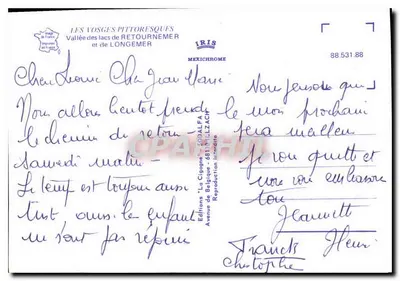 LES VOSGES PITTORESQUES
Vallée des lacs de RETOURNEMER
et de LONGEMER
IRIS
MEXICHROME
88.531.88
Cher Cher Jean Marie
Nous allons bientot prendre
le chemin du retour -
samedi matin -
Le temps est toujours aussi
triste aussi les enfants
ne sont pas réjouis
Nous pensons que
le mois prochain
sera meilleur
Je vous quitte et
vous embrasse
tous
Jeannette
Henri
Franck
Christophe
Editions "La Cigogne"
Avenue de Belgique - 68110 ILLZACH
Reproduction interdite